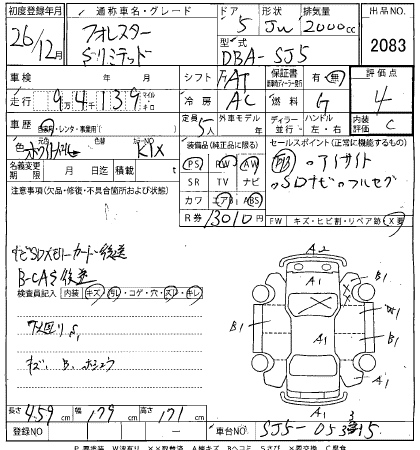 初度登録年月 通称車名・グレード ドア 形状 排気量 出品NO.
26/12月 フォレスター 5 JW 2000cc 2083
Sリミテッド 型式 DBA-SJ5
車検 年 月 シフト FAT 保証書 有・無 評価点
走行 9万4千139 キロ 冷房 AC 燃料 G 4
車歴 自家用・レンタ・事業用 定員 5人 外車モデル 年 ディーラー 並行 ハンドル 左・右 内装 C
色 ホワイトパール 色替 カラーNO K1X 装備品(純正品に限る) セールスポイント(正常に機能するもの)
名義変更期限 月 日迄 積載 t PS PW AW アイサイト
注意事項(欠品・修復・不具合箇所および状態) SR TV ナビ SDナビ フルセグ
カワ エアB ABS
R券 13010円 FW キズ・ヒビ割・リペア跡・X要
ナビSDメモリーカード後送
B-CAS後送
検査員記入 内装 キズ・汚レ・コゲ・穴・スレ・キレ
ワ廻りS1
キズ、B、ホシュウ
A2
A1
B1
A1
B1
B1
A1
A1
A1
長さ 459cm 幅 179cm 高さ 171cm
登録NO 車台NO SJ5-053315